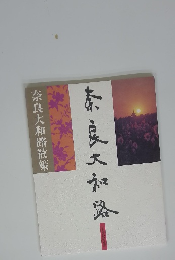 奈良大和路
奈良大和路散策